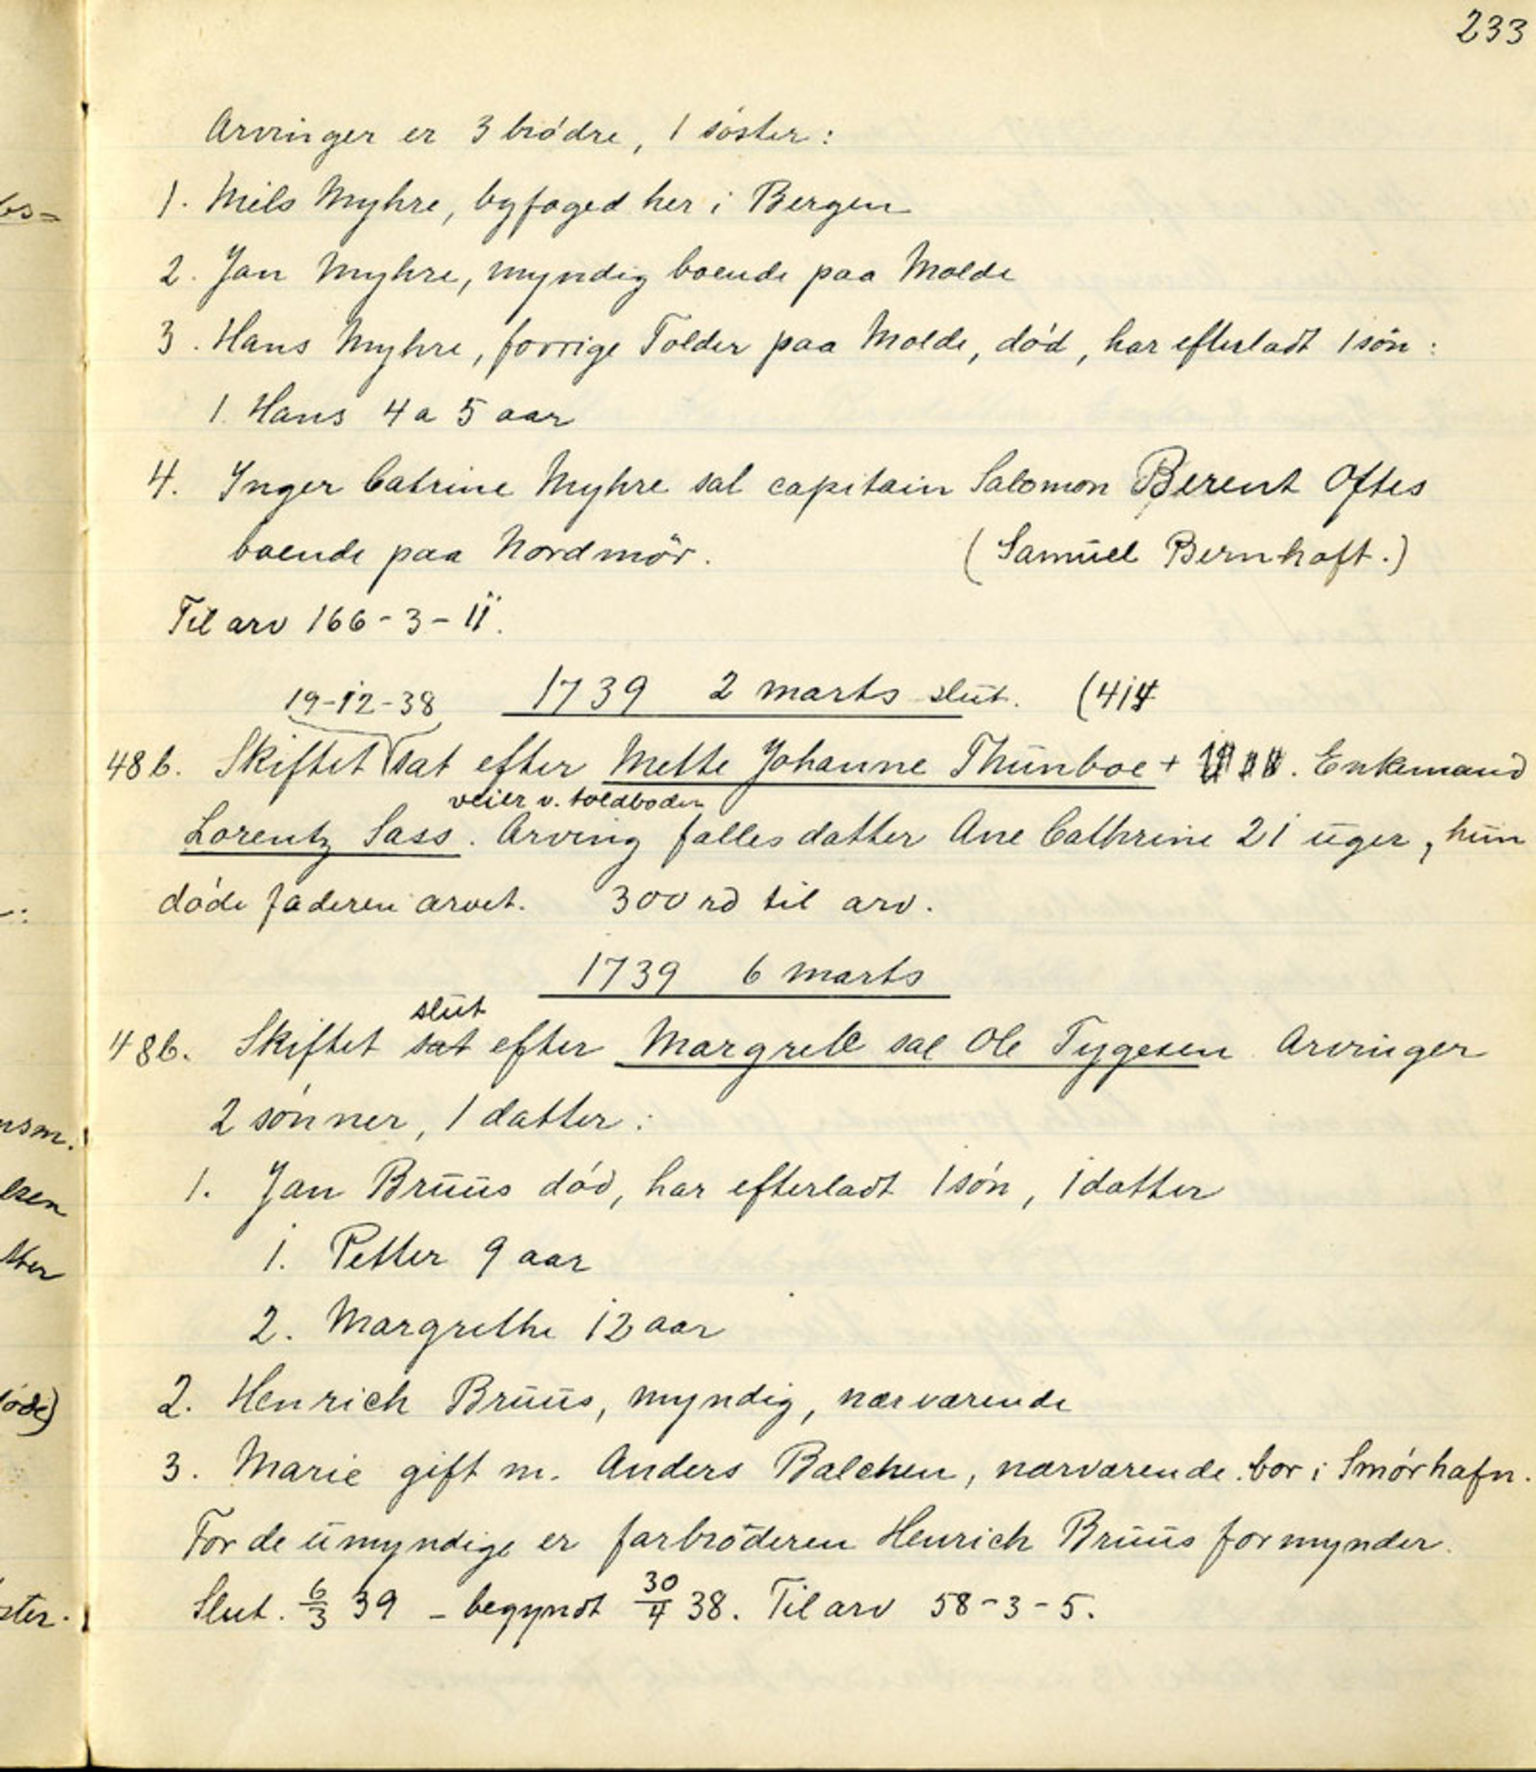 233
Arvinger er 3 brødre, 1 søster:
1. Niels Myhre, byfoged her i Bergen
2. Jan Myhre, myndig boende paa Molde
3. Hans Myhre, forrige Tolder paa Molde, død, har efterladt 1 søn:
1. Hans 4 a 5 aar
4. Inger Catrine Myhre sal capitain Salomon Berent Oftes
boende paa Nordmør. (Samuel Bernhoft.)
Til arv 166-3-11.
19-12-38 1739 2 marts slut. (414
48b. Skiftet sat efter Mette Johanne Thunboe + . Enkemand
veier v. toldboden
Lorentz Sass. Arving falles datter Ane Cathrine 21 uger, hun
døde faderen arvet. 300 rd til arv.
1739 6 marts
slut
48b. Skiftet sat efter Margrete sal Ole Tygesen Arvinger
2 sønner, 1 datter:
1. Jan Bruus død, har efterladt 1 søn, 1 datter
1. Petter 9 aar
2. Margrethe 12 aar
2. Henrich Bruus, myndig, nærværende
3. Marie gift m. Anders Balchen, nærværende bor i Smørhafn.
For de umyndige er farbroderen Henrich Bruus formynder.
Slut. 6/3 39 - begyndt 30/4 38. Til arv 58-3-5.